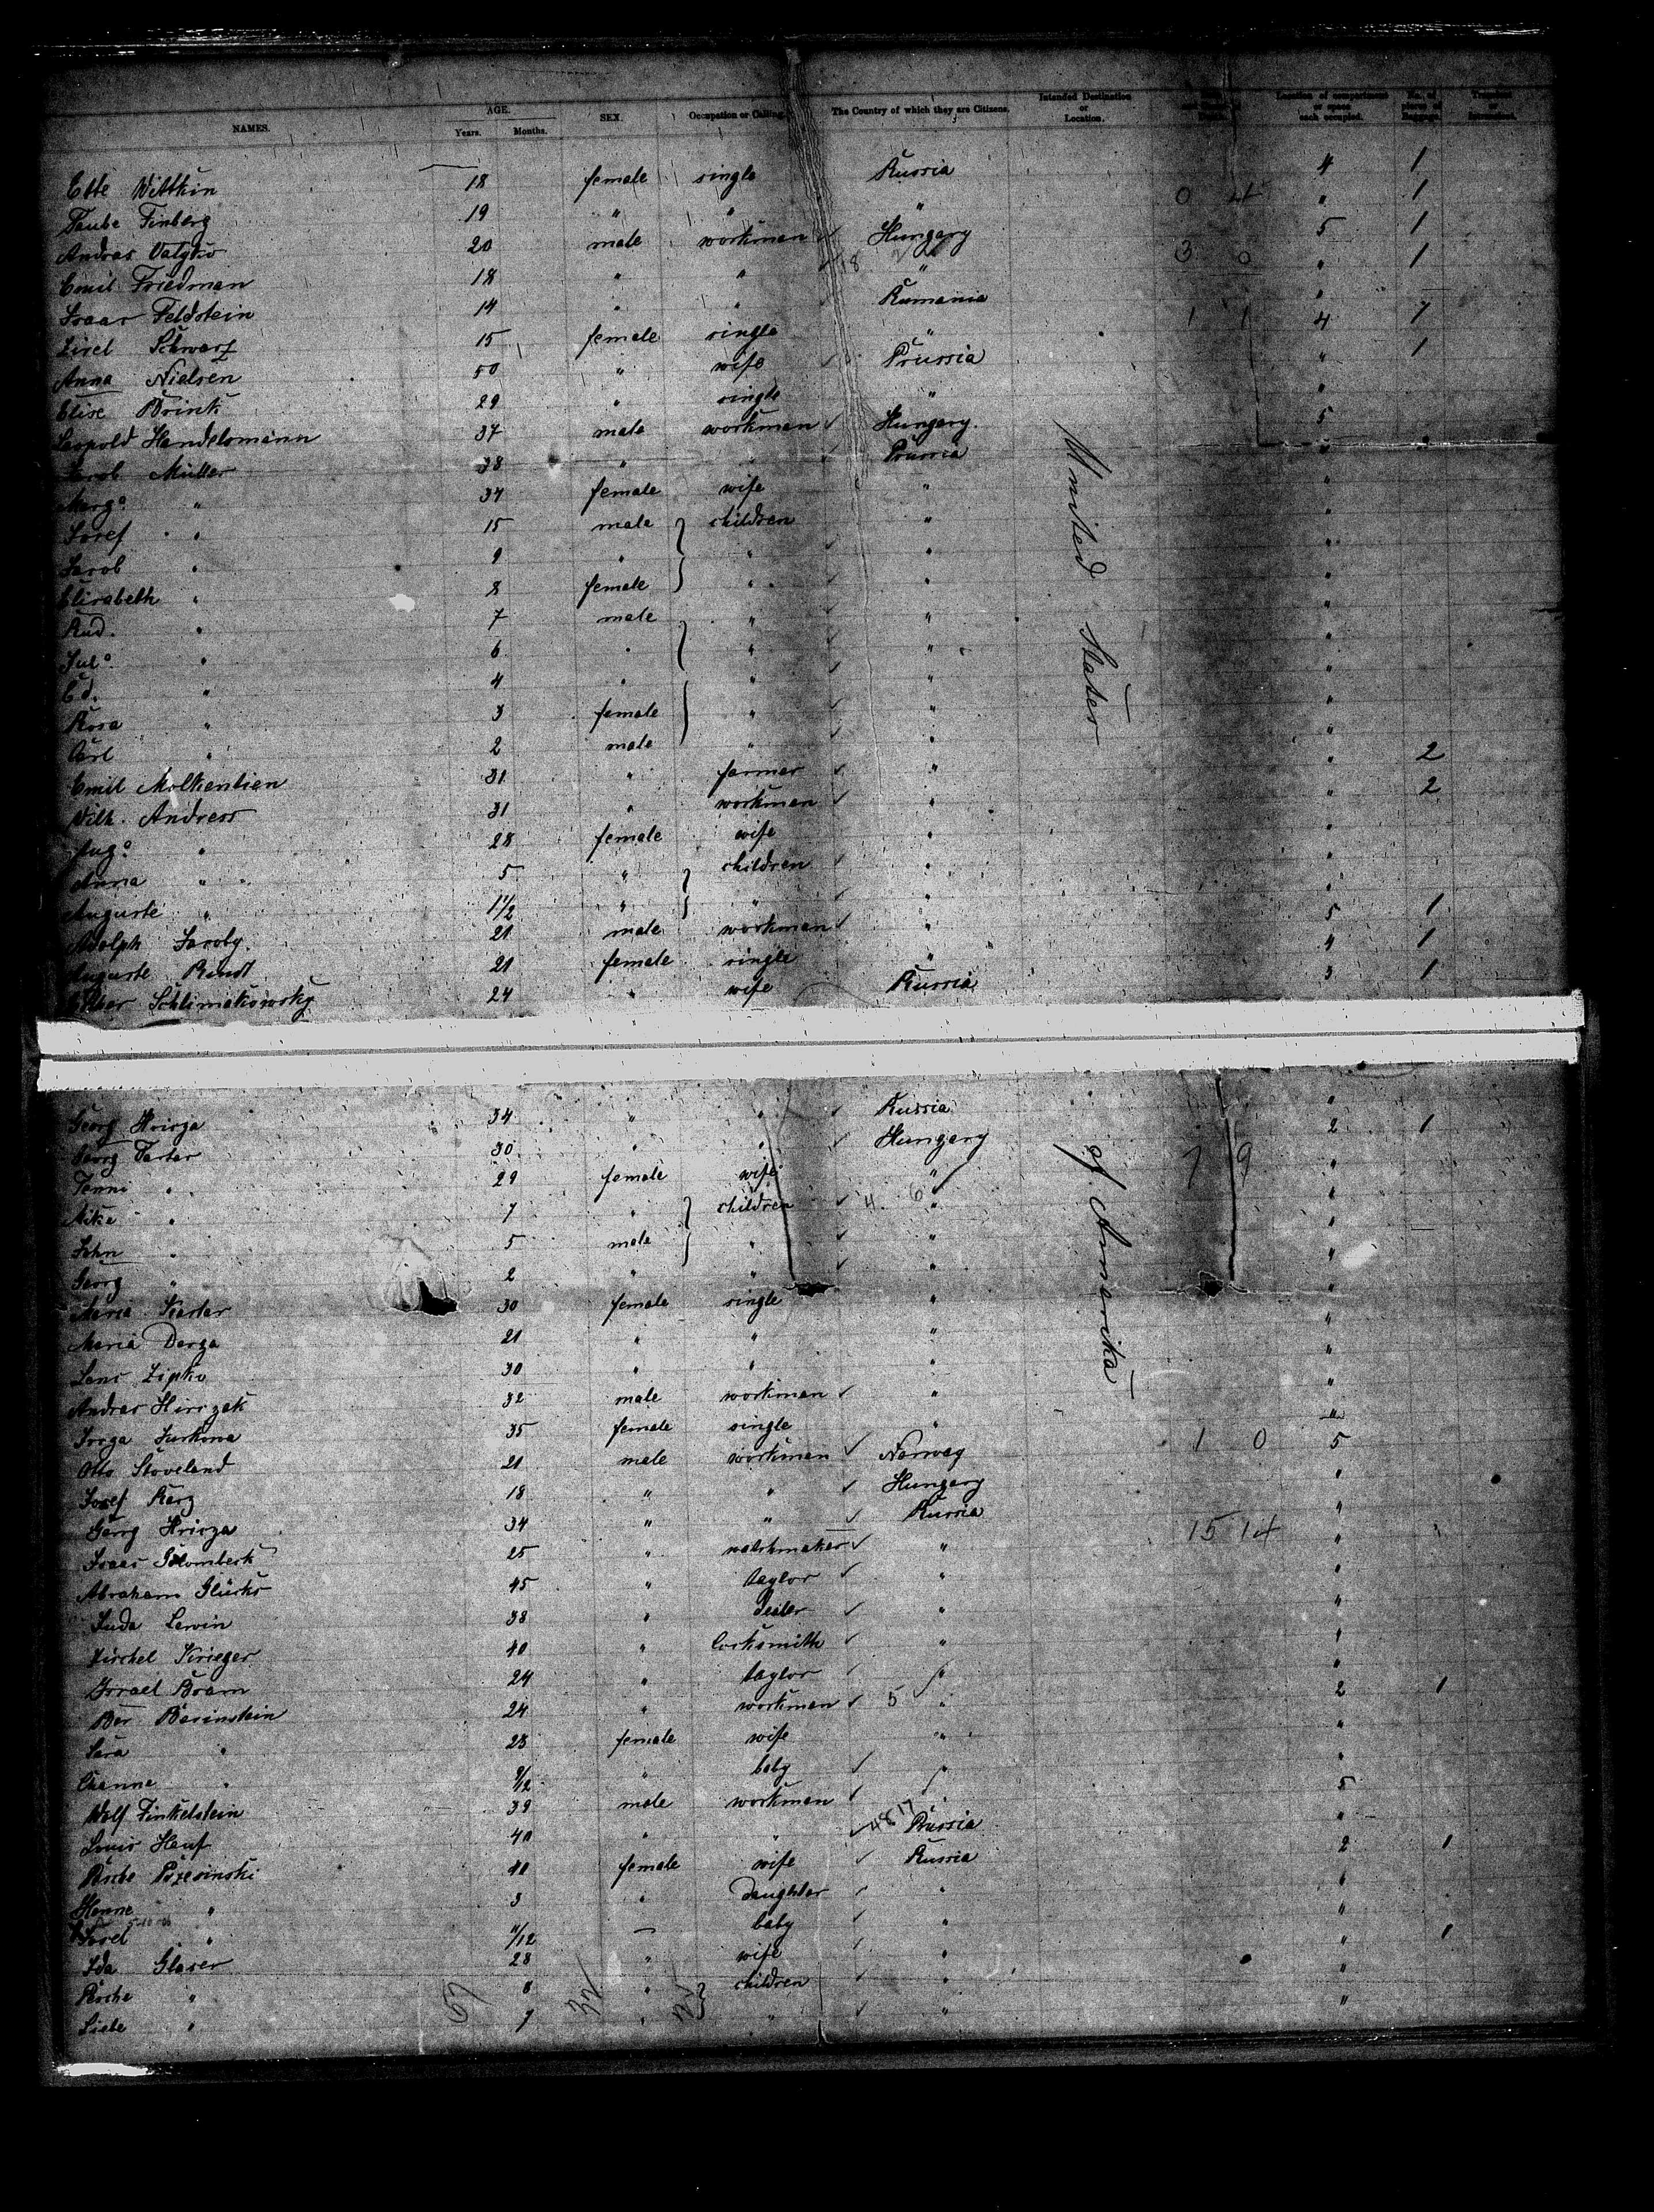 NAMES. AGE. Years. Months. SEX. Occupation or Calling. The Country of which they are Citizens. Intended Destination or Location. Location of compartment or space each occupied. No. of pieces of Baggage. Transient or
Ette Wittkin 18 female single Russia 4 1
Taube Finberg 19 " " " " 1
Andras 20 male workman Hungary 5 1
Emil Friedman 18 " " " " 1
Isaac Feldstein 14 " " Rumania "
Lisel Schwarz 15 female single " 4 1
Anna Nielsen 50 " wife Prussia " 1
Elise Brink 29 " single " "
Leopold Handelsmann 37 male workman Hungary. 5
Jacob Müller 38 " " Prussia "
Marg. " 34 female wife " "
Josef " 15 male children " "
Jacob " 9 " " " "
Elisabeth " 8 female " " "
Rud. " 7 male " " "
Jul. " 6 " " " "
Ed. " 4 " " " "
Rosa " 3 female " " "
Carl " 2 male " " "
Emil Molkentien 31 " farmer " " 2
Wilh. Andress 31 " workman " " 2
Aug. " 28 female wife " "
Anna " 5 " children " "
Auguste " 1 1/2 " " " "
Adolph Jacoby 21 male workman " 5 1
Auguste Rindt 21 female single " 4 1
Schlimakowsky 24 " wife Russia 3 1
United States
Georg Hrisza 34 " " Russia "
Georg Tartar 30 " " Hungary 2 1
Tenni " 29 female wife " "
Mike " 7 " children " "
John " 5 male " " "
Georg " 2 " " " "
Maria Kartar 30 female single " "
Maria Derza 21 " " " "
30 " " " "
Andras Hirczak 32 male workman " "
Jurkowa 35 female single " "
Otto Stoveland 21 male workman Norway 5
Josef 18 " " Hungary "
Georg Hrisza 34 " " Russia "
Isaac 25 " watchmaker " "
Abraham Glücks 45 " taylor " "
Juda Lewin 38 " dealer " "
Hirschel Krieger 40 " Locksmith " "
Israel Boam 24 " taylor " "
Ber Berinstein 24 " workman " 2 1
Sara " 23 female wife " "
Channe " 9/12 " baby " "
Wolf Finkelstein 39 male workman " 5
Louis Hauf 40 " " Prussia "
Pesche 40 female wife Russia 2 1
Henne " 3 " Daughter " "
Sorel " 11/12 — baby " "
Ida Glaser 28 " wife " " 1
Pesche " 8 " children " "
Liebe " 7 " " " "
of Amerika